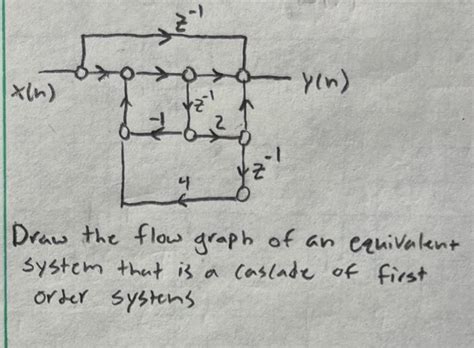 z⁻¹
x(n)
y(n)
z⁻¹
-1
2
z⁻¹
4
Draw the flow graph of an equivalent
system that is a cascade of first
order systems